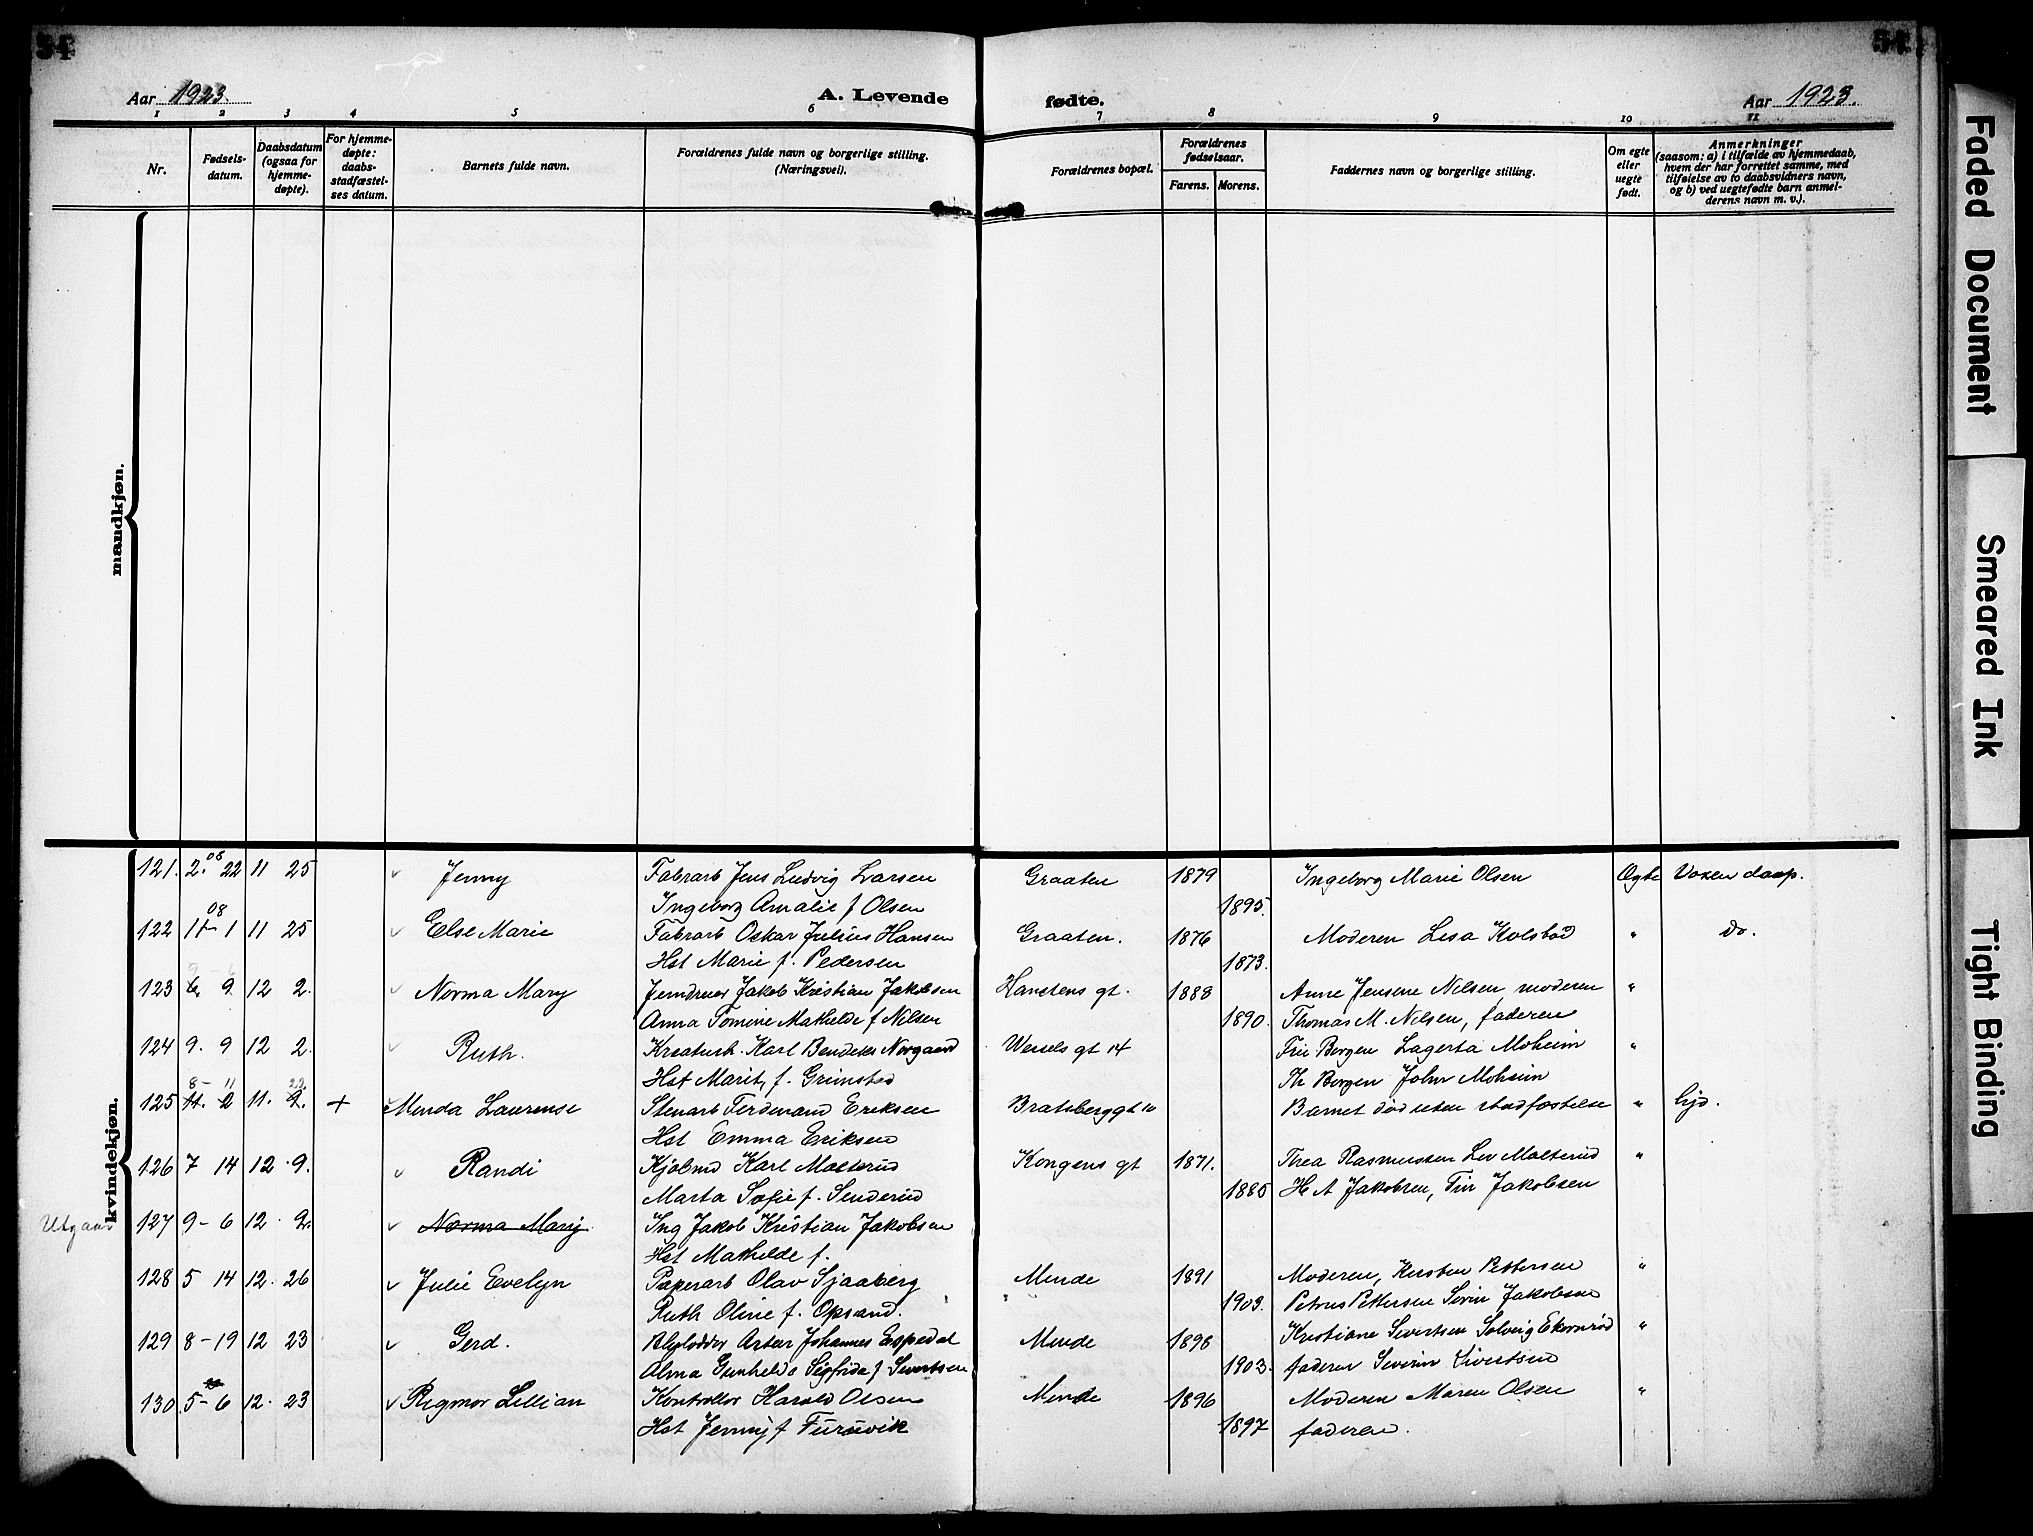 54
54
Aar 1923.
A. Levende
fødte.
Aar 1923.
1 2 3 4 5 6 7 8 9 10 11
Nr.
Fødsels-
datum.
Daabsdatum
(ogsaa for
hjemme-
døpte).
For hjemme-
døpte:
daabs-
stadfæstel-
ses datum.
Barnets fulde navn.
Forældrenes fulde navn og borgerlige stilling.
(Næringsvei).
Forældrenes bopæl.
Forældrenes
fødselsaar.
Farens. Morens.
Faddernes navn og borgerlige stilling.
Om egte
eller
uegte
født.
Anmerkninger
(saasom: a) i tilfælde av hjemmedaab,
hvem der har forrettet samme, med
tilføielse av to daabsvidners navn,
og b) ved uegtefødte barn anmel-
derens navn m. v.).
mandkjøn.
kvindekjøn.
121. 2. 08 22 11 25 Jenny Fabrarb Jens Ludvig Larsen Graaten 1879 Ingeborg Marie Olsen Ogte Voxen daap.
Ingeborg Amalie f Olsen 1895.
122 11 08 1 11 25 Else Marie Fabrarb Oskar Julius Hansen Graaten. 1876 Moderen Lisa Kolsbød " Do.
Hst Marie f. Pedersen 1873.
123 9 12 2. Norma Mary Jakob Kristian Jakobsen Hanstens gt. 1888 Anne Jensene Nilsen, moderen "
Anna Tomine Mathilde f Nilsen 1890. Thomas M. Nilsen, faderen
124 9. 9 12 2. Ruth. Karl Bendiks Norgaard Wessels gt 14 Fru Borgen Lagerta Moheim "
Hst Marit, f. Grimstad Th Borgen John Moheim
125 8 - 11 11. 22 + Minda Laurense Stenarb Ferdinand Eriksen Bratsberggt 10 Barnet død uten stadfæstelse " hjd.
Hst Emma Eriksen
126 7 14 12 9. Randi Kjøbmd Karl Molterud Kongens gt 1871. Thea Rasmussen Lev Molterud "
Marta Sofie f. Senderud 1885 H A Jakobsen, Fru Jakobsen
Utgaar 127 9 - 6 12. 2. Norma Mary Ing Jakob Kristian Jakobsen
Hst Mathilde f.
128 5 14 12. 26 Julie Evelyn Paperarb Olav Sjaaberg Minde 1891 Moderen, Kirsten Pettersen "
Ruth Oline f. Opsand. 1903. Petrus Pettersen Severin Jakobsen
129 8 - 19 12 23 Gerd. Blylodder Artur Johannes Espedal Minde 1898 Kristiane Sivertsen Solveig Ekornrød "
Alma Gunhilda Sigfrida f Sivertsen 1902. faderen Severin Sivertsen
130 5 - 6 12. 23 Rigmor Lillian Kontrollør Harald Olsen Minde 1896 Moderen Maren Olsen "
Hst Jenny f Furuvik 1897 faderen.
Faded Document
Smeared Ink
Tight Binding